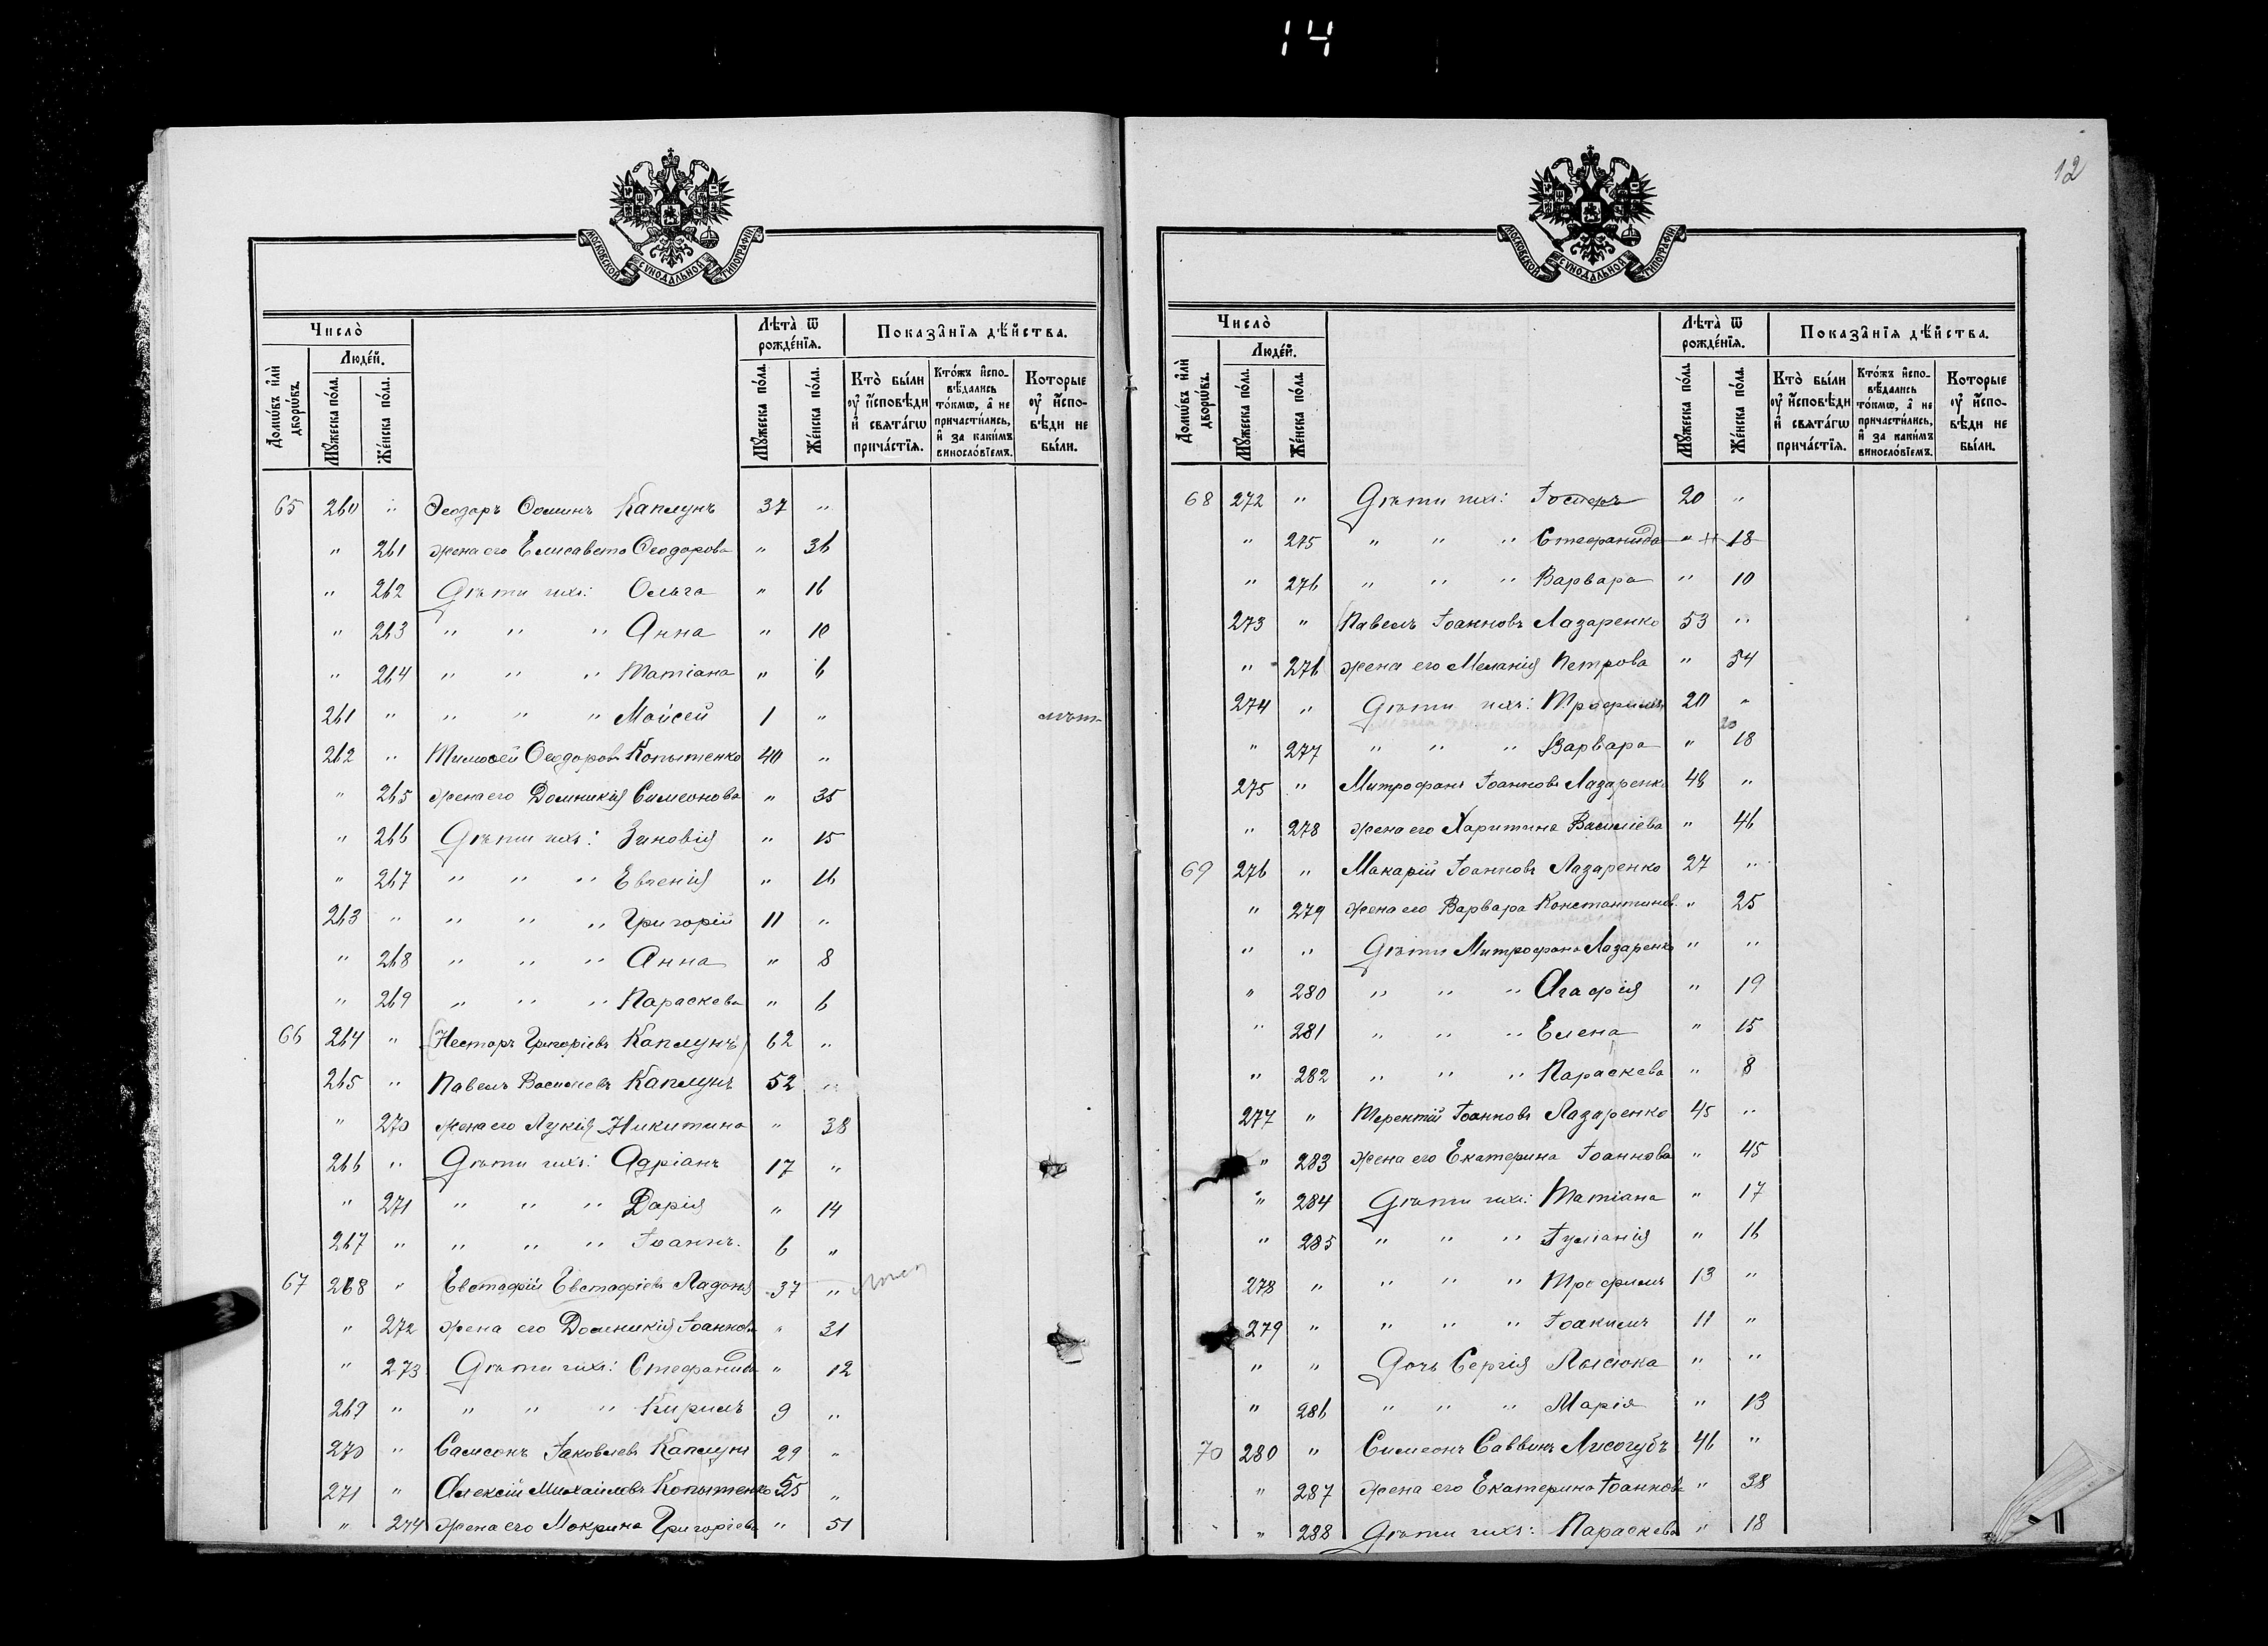 14
12
МОСКОВСКОЙ СУНОДАЛЬНОЙ ТИПОГРАФІИ
Число̀
Лѣта̀ ѿ рожде́нїѧ.
Показа̑нїѧ дѣ́йства.
Домѡ́въ и҆лѝ дворѡ́въ.
Люде́й.
Мꙋ́жеска по́ла.
Же́нска по́ла.
Мꙋ́жеска по́ла.
Же́нска по́ла.
Кто̀ бы́ли ᲂу҆ и҆сповѣ́ди и҆ свѧта́гѡ прича́стїѧ.
Кто́жъ и҆сповѣ́дались то́кмѡ, а҆ не причасти́лись, и҆ за каки́мъ виносло́вїемъ.
Которые ᲂу҆ и҆сповѣ́ди не бы́ли.
65 260 " Ѳеодоръ Ѳоминъ Каплунъ 37 "
" 261 жена его Елисавета Ѳеодорова " 36
" 262 Дѣти ихъ: Ольга " 16
" 263 " " " Анна " 10
" 264 " " " Татіана " 6
261 " " " " Мойсей 1 "
262 " Тимоѳей Ѳеодоровъ Копытенко 40 "
" 265 жена его Домникія Симеонова " 35
" 266 Дѣти ихъ: Зиновія " 15
" 267 " " " Евгенія "
263 " " " " Григорій 11 "
" 268 " " " Анна " 8
" 269 " " " Параскева " 6
66 264 " (Несторъ Григоріевъ Каплунъ) 62 "
265 " Павелъ Василіевъ Каплунъ 52 "
" 270 жена его Лукія Никитина " 38
266 " Дѣти ихъ: Адріанъ 17 "
" 271 " " " Дарія " 14
267 " " " " Іоаннъ. 6 "
67 268 " Евстафій Евстафіевъ Ладоня 37 "
" 272 жена его Домникія Іоаннова " 31
" 273 Дѣти ихъ: Стефанида " 12
269 " " " " Кирилъ 9 "
270 " Самсонъ Іаковлевъ Каплунъ 29 "
271 " Алексій Михаиловъ Копытенко 55 "
" 274 жена его Мокрина Григоріева " 51
Число̀
Лѣта̀ ѿ рожде́нїѧ.
Показа̑нїѧ дѣ́йства.
Домѡ́въ и҆лѝ дворѡ́въ.
Люде́й.
Мꙋ́жеска по́ла.
Же́нска по́ла.
Мꙋ́жеска по́ла.
Же́нска по́ла.
Кто̀ бы́ли ᲂу҆ и҆сповѣ́ди и҆ свѧта́гѡ прича́стїѧ.
Кто́жъ и҆сповѣ́дались то́кмѡ, а҆ не причасти́лись, и҆ за каки́мъ виносло́вїемъ.
Которые ᲂу҆ и҆сповѣ́ди не бы́ли.
68 272 " Дѣти ихъ: Іосифъ 20 "
" 275 " " " Стефанида " 18
" 276 " " " Варвара " 10
273 " Павелъ Іоанновъ Лазаренко 53 "
" 276 жена его Меланія Петрова " 54
274 " Дѣти ихъ: Трофимъ 20 "
20
" 277 " " " Варвара " 18
275 " Митрофанъ Іоанновъ Лазаренко 48 "
" 278 жена его Харитина Василіева " 46
69 276 " Макарій Іоанновъ Лазаренко 27 "
" 279 жена его Варвара Константинов. " 25
" " Дѣти Митрофана Лазаренко " "
" 280 " " " Агафія " 19
" 281 " " " Елена " 15
" 282 " " " Параскева " 8
277 " Терентій Іоанновъ Лазаренко 45 "
" 283 жена его Екатерина Іоаннова " 45
" 284 Дѣти ихъ: Татіана " 17
" 285 " " " Іуліанія " 16
278 " " " " Трофимъ 13 "
279 " " " " Іоакимъ 11 "
" " Дочь Сергія Лысюка " "
" 286 " " " Марія " 13
70 280 " Симеонъ Саввинъ Лисогубъ 46 "
" 287 жена его Екатерина Іоаннова " 38
" 288 Дѣти ихъ: Параскева " 18